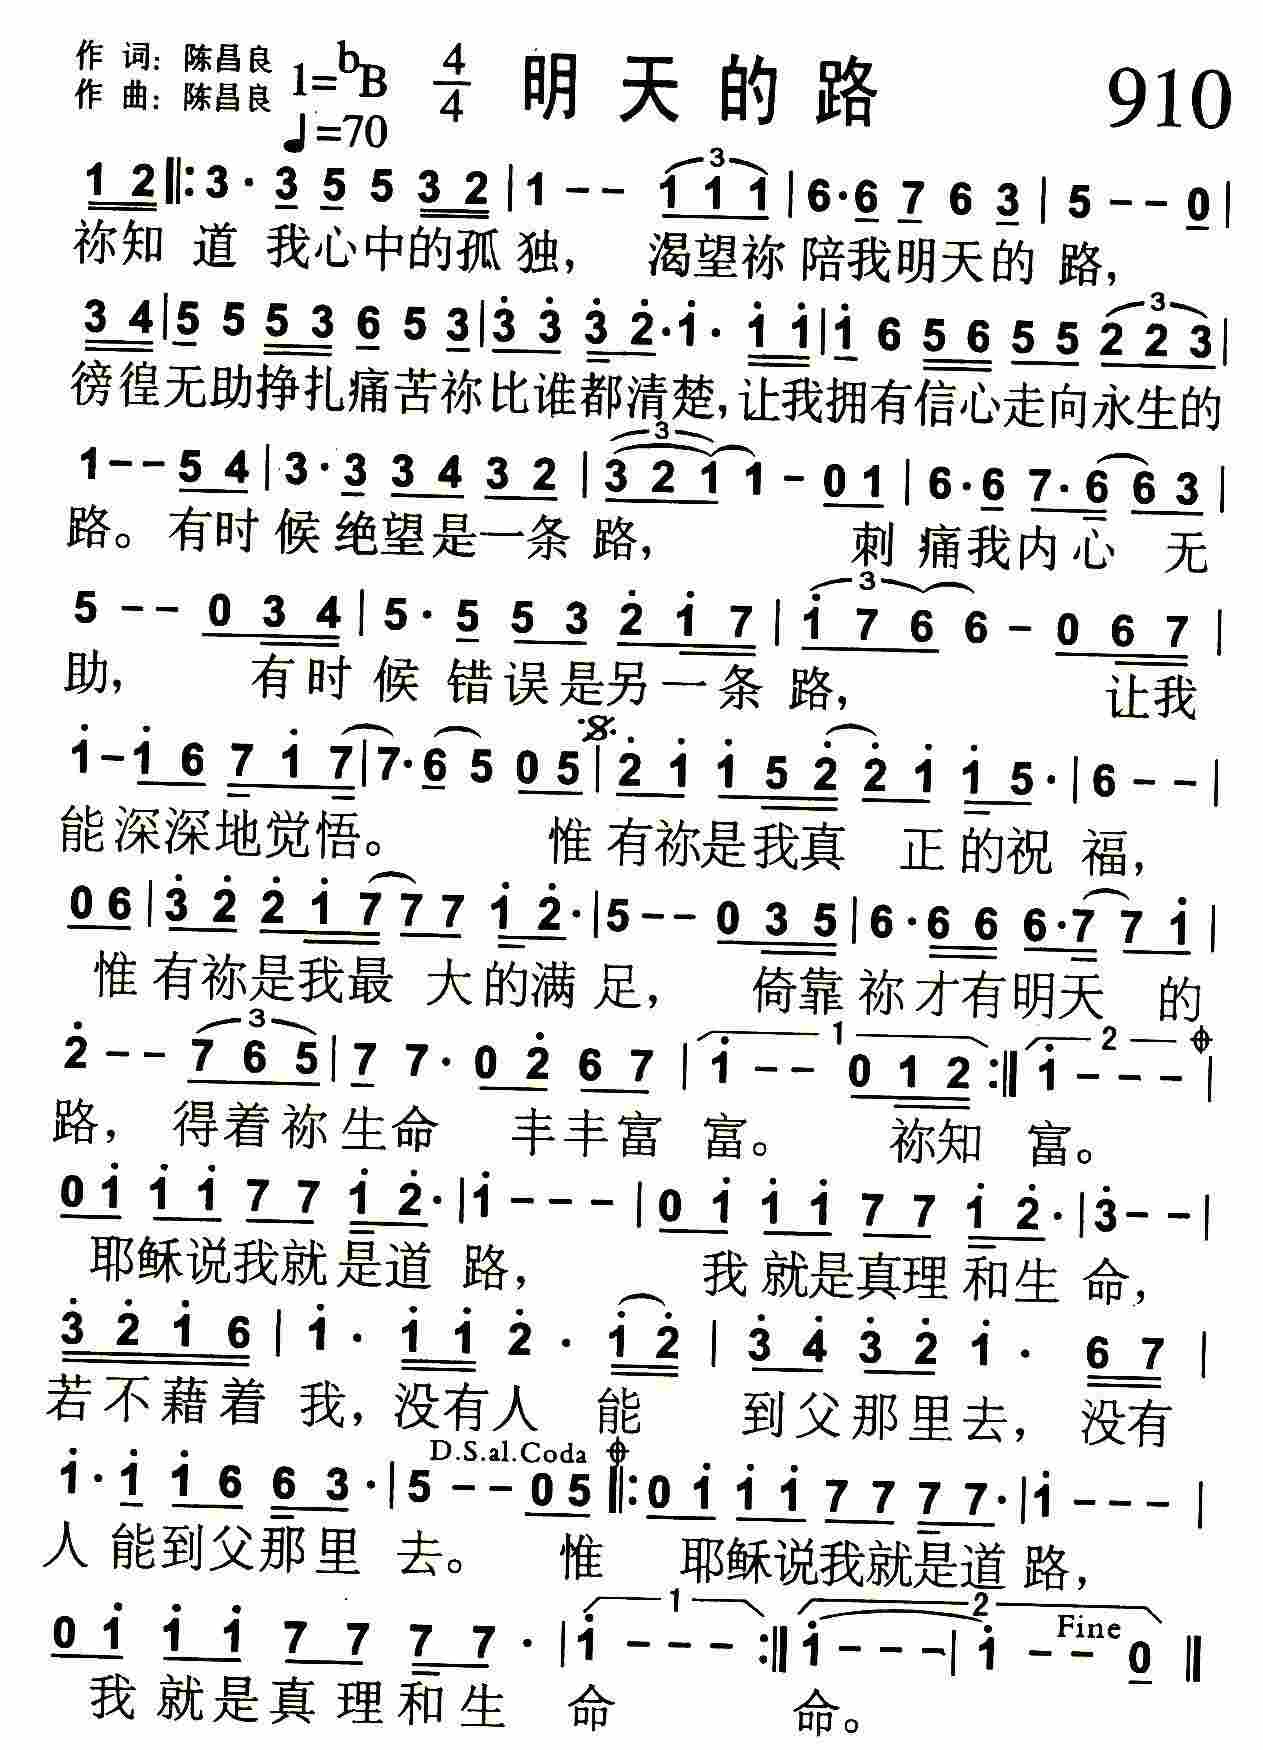 作 词: 陈昌良 1=bB 4/4 明天的路 910
作 曲: 陈昌良 ♩=70
1 2 ‖: 3 · 3 5 5 3 2 | 1 - - 1 1 1 | 6 · 6 7 6 3 | 5 - - 0 |
祢知 道 我心中的孤 独, 渴望祢 陪我明天的 路,
3 4 | 5 5 5 3 6 5 3 | 3 3 3 2 · 1 · 1 1 | 1 6 5 6 5 5 2 2 3 |
徬徨无助挣扎痛苦祢比谁都清楚,让我拥有信心走向永生的
1 - - 5 4 | 3 · 3 3 4 3 2 | 3 2 1 1 - 0 1 | 6 · 6 7 · 6 6 3 |
路。有时 候 绝望是一条 路, 刺 痛我内心 无
5 - - 0 3 4 | 5 · 5 5 3 2 1 7 | 1 7 6 6 - 0 6 7 |
助, 有 时 候 错 误 是 另 一 条 路, 让我
1 - 1 6 7 1 7 | 7 · 6 5 0 5 | 2 1 1 5 2 2 1 1 5 · | 6 - - |
能深深地觉悟。 惟 有祢是我真 正的祝 福,
0 6 | 3 2 2 1 7 7 7 1 2 · | 5 - - 0 3 5 | 6 · 6 6 6 · 7 7 1 |
惟 有祢是我最 大的满 足, 倚靠 祢才有明天 的
2 - - 7 6 5 | 7 7 · 0 2 6 7 | 1 - - 0 1 2 :‖ 1 - - - |
路, 得着祢生命 丰丰富 富。 祢知 富。
0 1 1 1 7 7 1 2 · | 1 - - - | 0 1 1 1 7 7 1 2 · | 3 - - |
耶稣说我就是道 路, 我 就是真理和生 命,
3 2 1 6 | 1 · 1 1 2 · 1 2 | 3 4 3 2 1 · 6 7 |
若不藉着 我,没有人 能 到父那里去, 没有
D.S.al.Coda
1 · 1 1 6 6 3 · | 5 - - 0 5 ‖: 0 1 1 1 7 7 7 7 · | 1 - - - |
人 能到父那里 去。 惟 耶稣说我就是道 路,
0 1 1 1 7 7 7 7 · | 1 - - - :‖ 1 - - - | 1 - - 0 ‖ Fine
我 就是真 理和生 命 命。